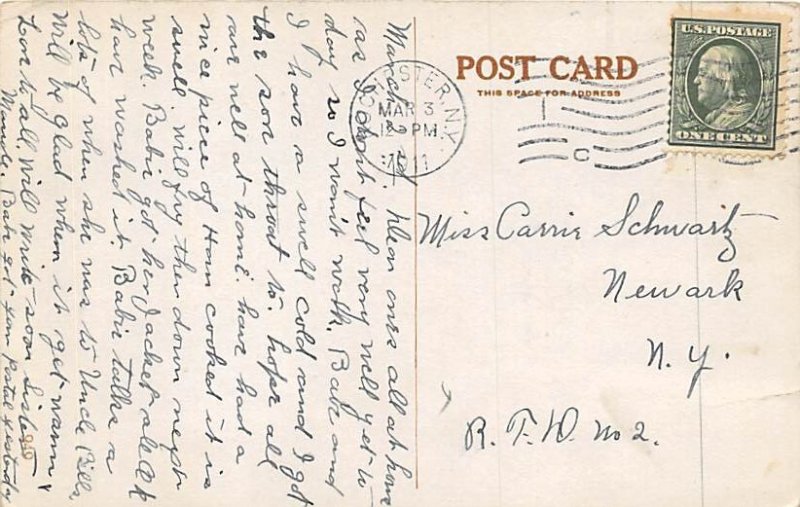 POST CARD
THIS SPACE FOR ADDRESS
U.S. POSTAGE
ONE CENT
MAR 3
12 PM
1911
C
Miss Carrie Schwartz
Newark
N. Y.
R. F. D. No 2.
March 3rd. Dear ones all at home
as I don't feel very well yet to
day so I won't walk. Babe and
I have a swell cold and I got
the sore throat to. hope all
are well at home. have had a
nice piece of Ham cooked it is
swell will fry them down next
week. Babie got her Jacket all OK
have washed it. Babie talks a
lots of when she was to Uncle Bills
Will be glad when it get warm &
Love to all. Will write soon Sister
Maude. Babe got your postal yesterday